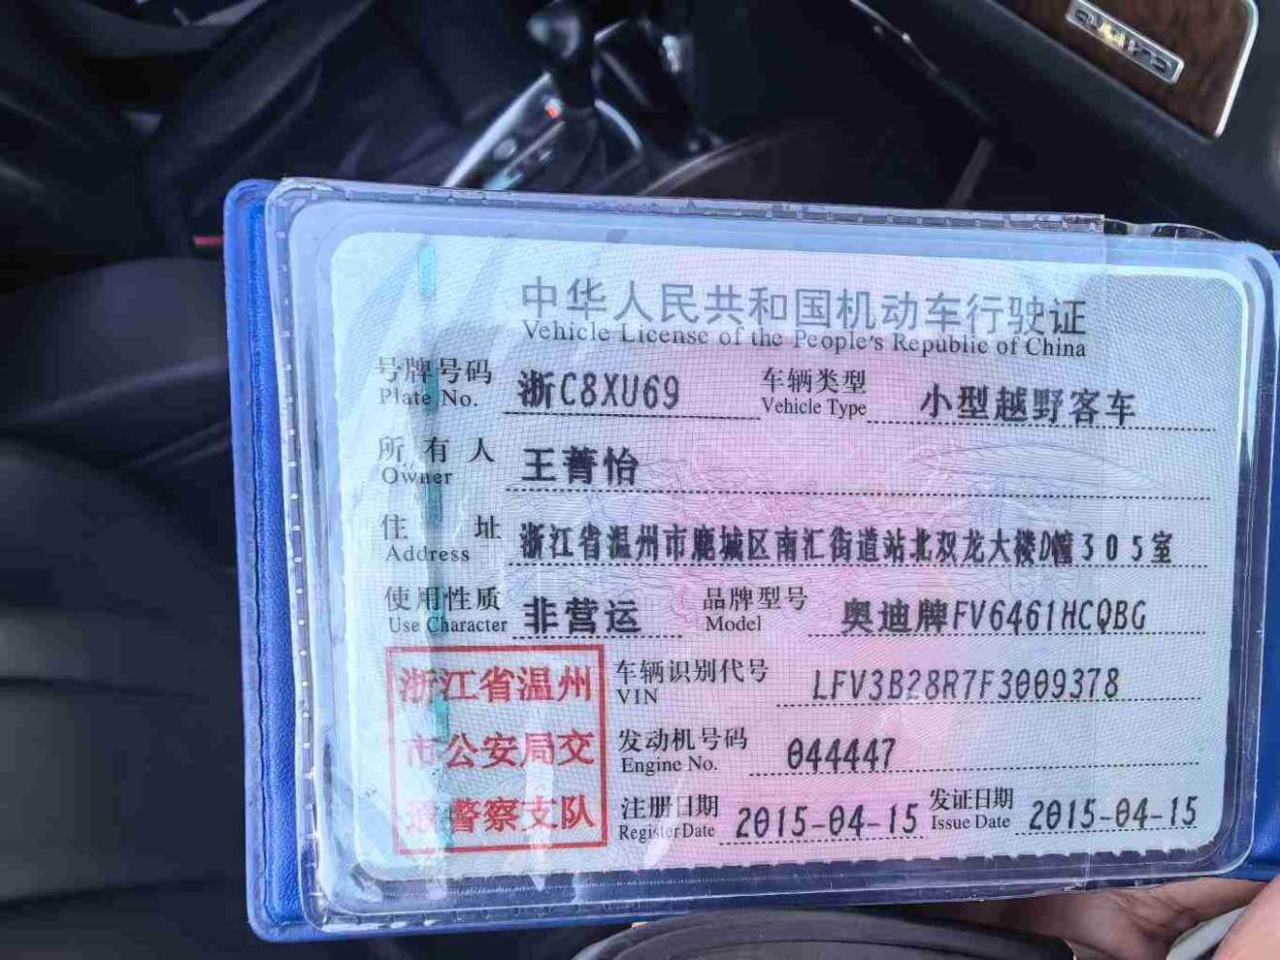 quattro
中华人民共和国机动车行驶证
Vehicle License of the People's Republic of China
号牌号码 浙C8XU69 车辆类型 小型越野客车
Plate No. Vehicle Type
所有人 王菁怡
Owner
住址 浙江省温州市鹿城区南汇街道站北双龙大楼D幢305室
Address
使用性质 非营运 品牌型号 奥迪牌FV6461HCQBG
Use Character Model
浙江省温州
市公安局交
通警察支队
车辆识别代号 LFV3B28R7F3009378
VIN
发动机号码 044447
Engine No.
注册日期 2015-04-15 发证日期 2015-04-15
Register Date Issue Date